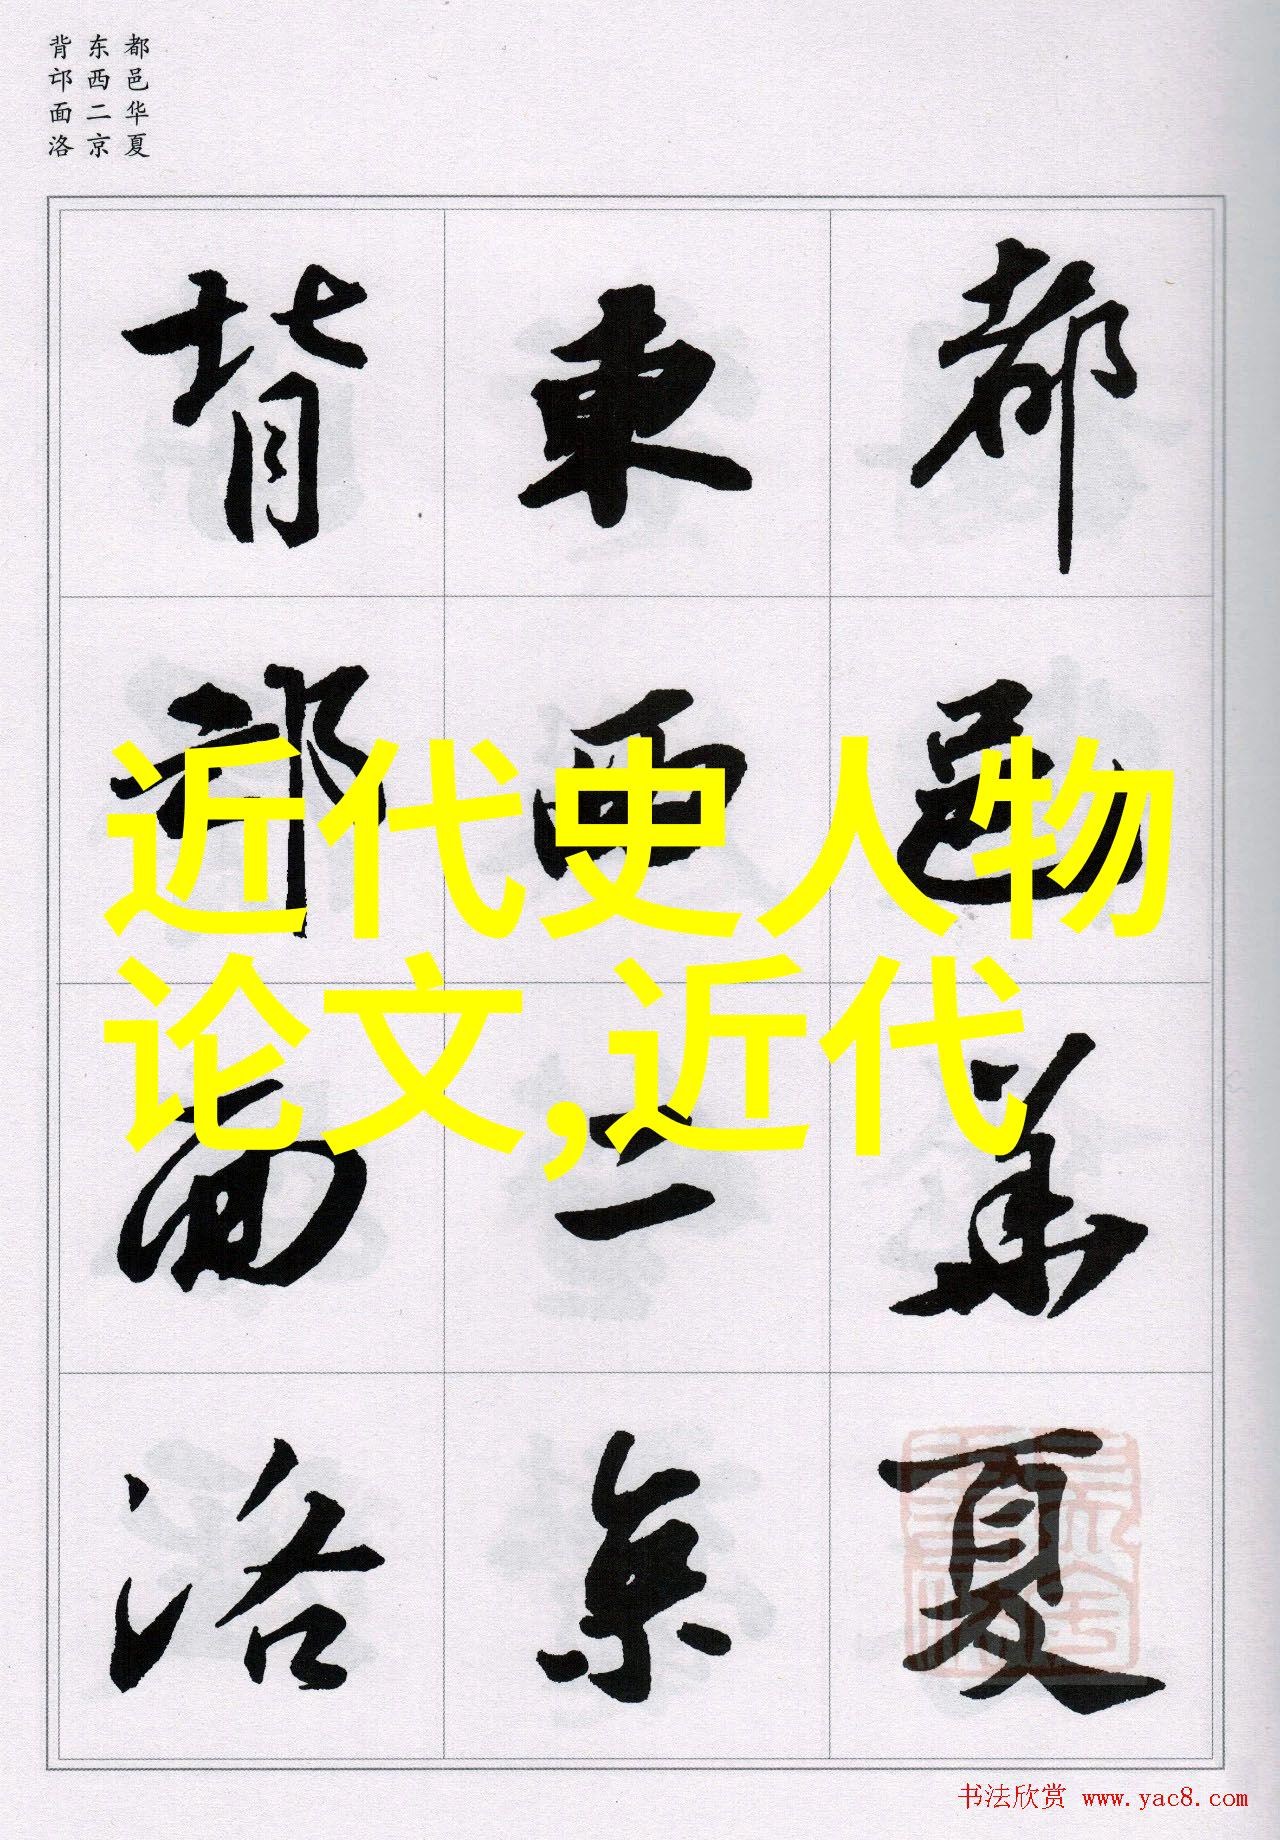 都邑华夏
东西二京
背邙面洛
都邑華夏
東西二京
背邙面洛
近代史人物
论文,近代
书法欣赏 www.yac8.com